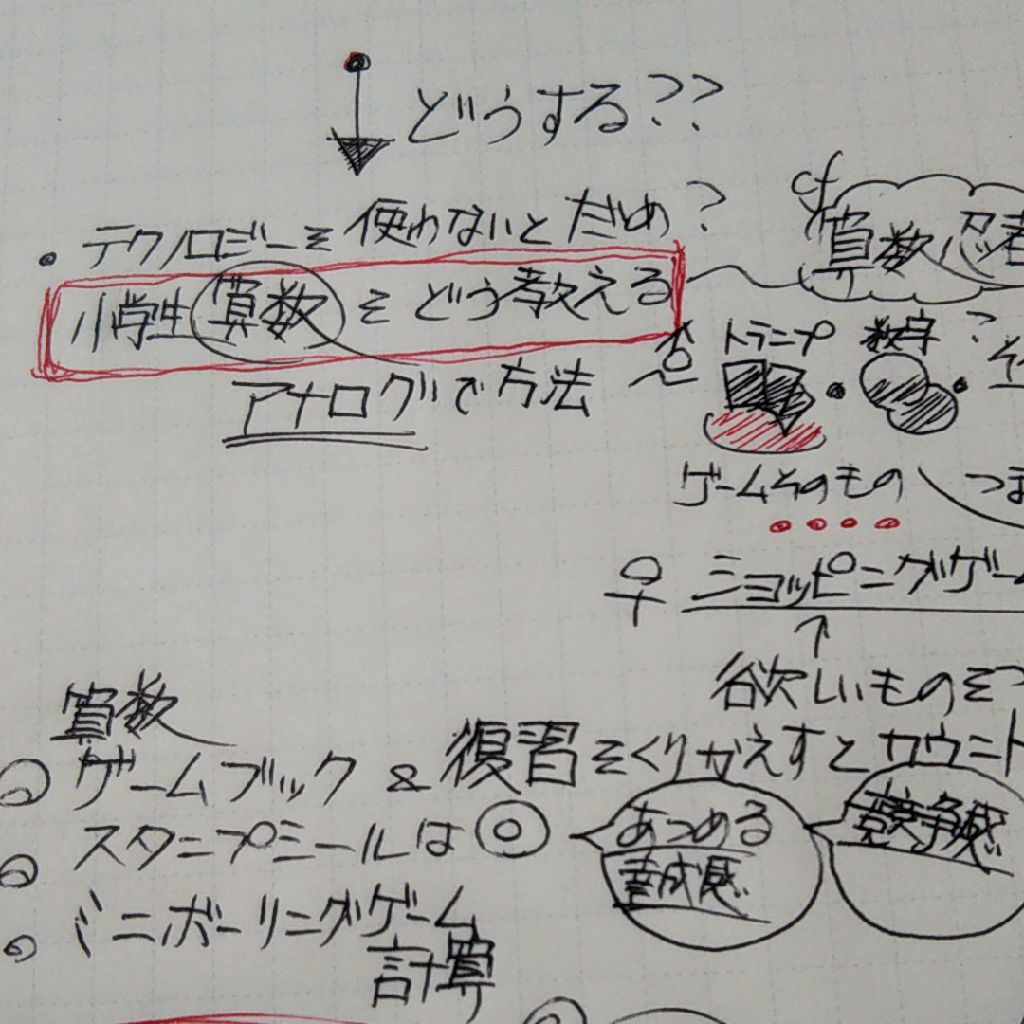 どうする??
・テクノロジーを使わないとだめ?
cf
算数忍者
小学生算数をどう教える
アナログで方法
トランプ 数字?
ゲームそのもの つま
ショッピングゲー
欲しいものを
算数
ゲームブック & 復習をくりかえすとカウント
スタンプシールは◎
あつめる
達成感
競争感
ミニボーリングゲーム
計算